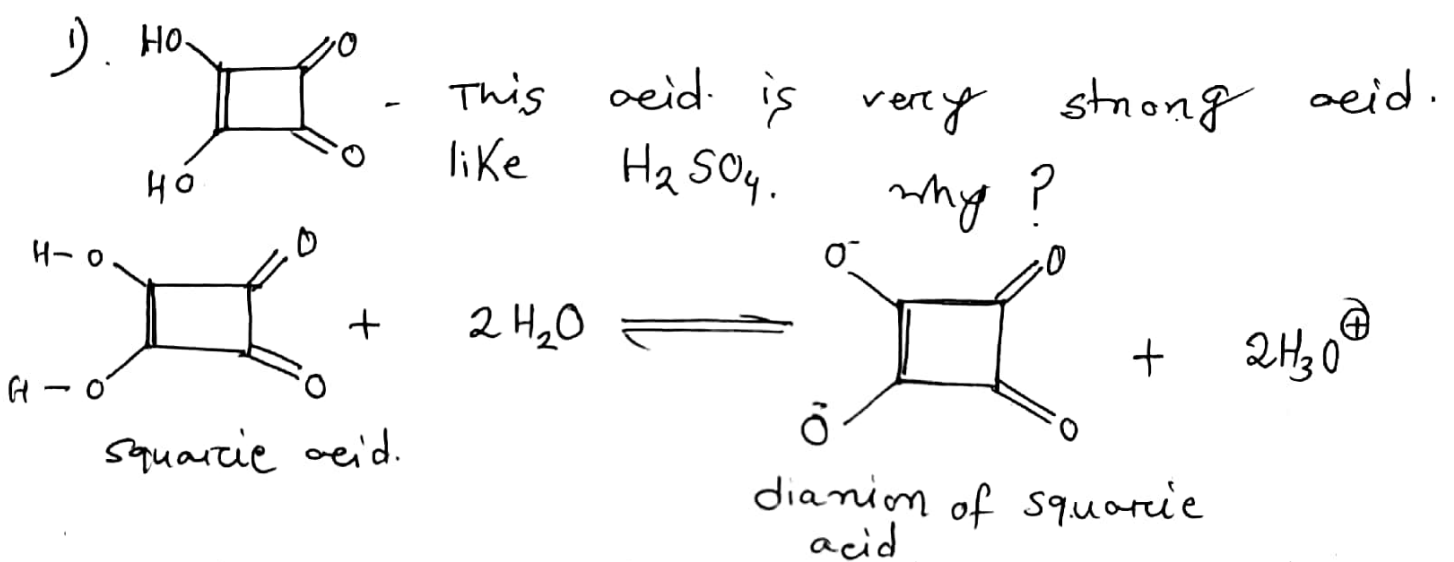 1). HO O - This acid is very strong acid.
HO O like H2SO4. why ?
H-O O O- O
+ 2H2O ⇌ + 2H3O⊕
H-O O O- O
squaric acid.
dianion of squaric
acid